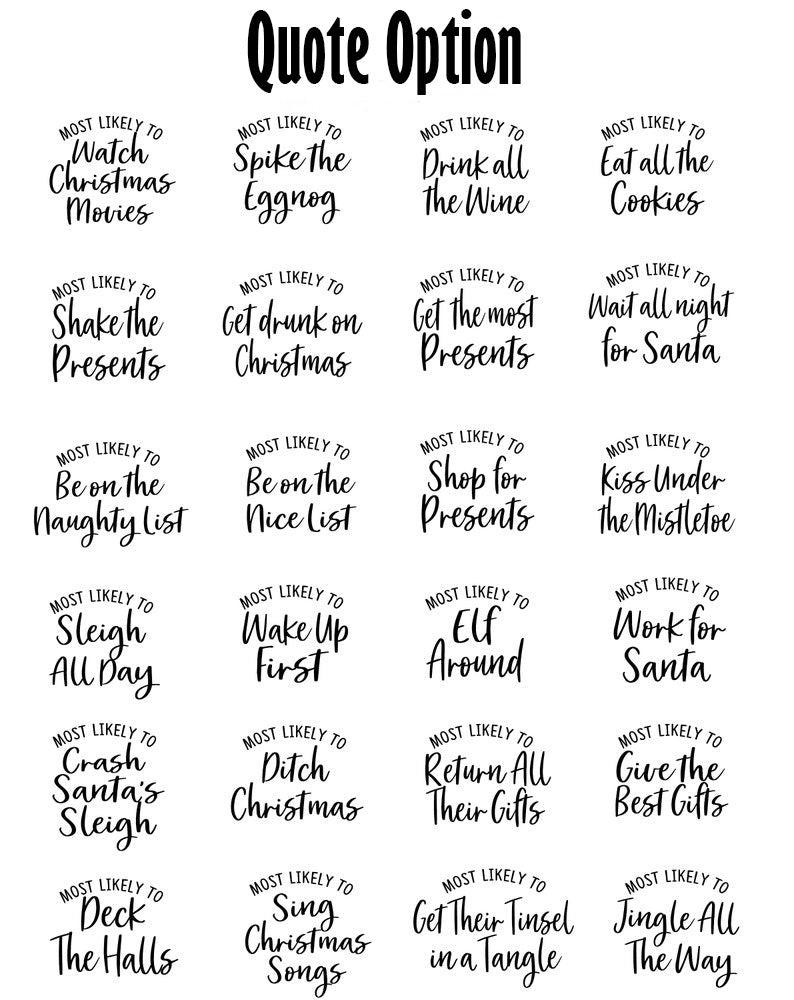 Quote Option
MOST LIKELY TO
Watch
Christmas
Movies
MOST LIKELY TO
Spike the
Eggnog
MOST LIKELY TO
Drink all
the Wine
MOST LIKELY TO
Eat all the
Cookies
MOST LIKELY TO
Shake the
Presents
MOST LIKELY TO
Get drunk on
Christmas
MOST LIKELY TO
Get the most
Presents
MOST LIKELY TO
Wait all night
for Santa
MOST LIKELY TO
Be on the
Naughty List
MOST LIKELY TO
Be on the
Nice List
MOST LIKELY TO
Shop for
Presents
MOST LIKELY TO
Kiss Under
the Mistletoe
MOST LIKELY TO
Sleigh
All Day
MOST LIKELY TO
Wake Up
First
MOST LIKELY TO
Elf
Around
MOST LIKELY TO
Work for
Santa
MOST LIKELY TO
Crash
Santa's
Sleigh
MOST LIKELY TO
Ditch
Christmas
MOST LIKELY TO
Return All
Their Gifts
MOST LIKELY TO
Give the
Best Gifts
MOST LIKELY TO
Deck
The Halls
MOST LIKELY TO
Sing
Christmas
Songs
MOST LIKELY TO
Get Their Tinsel
in a Tangle
MOST LIKELY TO
Jingle All
The Way